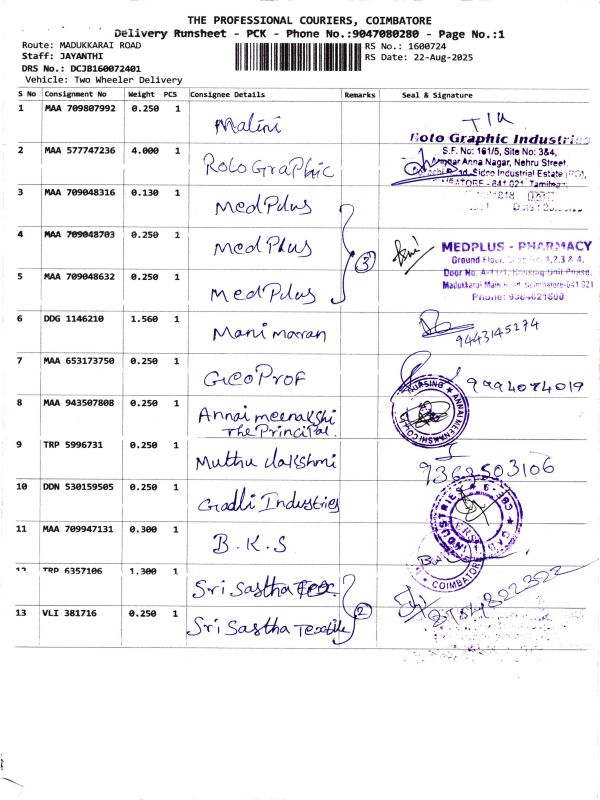 THE PROFESSIONAL COURIERS, COIMBATORE
Delivery Runsheet - PCK - Phone No.:9047080280 - Page No.:1
Route: MADUKKARAI ROAD
RS No.: 1600724
Staff: JAYANTHI
RS Date: 22-Aug-2025
DRS No.: DCJB160072401
Vehicle: Two Wheeler Delivery
S No Consignment No Weight PCS Consignee Details Remarks Seal & Signature
1 MAA 709807992 0.250 1 Malini
2 MAA 577747236 4.000 1 Roto Graphic
Roto Graphic Industries
S.F. No: 161/5, Site No: 3&4,
Anna Nagar, Nehru Street,
Sidco Industrial Estate (PO),
3 MAA 709048316 0.130 1 MedPlus
4 MAA 709048703 0.250 1 MedPlus 3
MEDPLUS - PHARMACY
Ground Floor, 1,2,3 & 4,
Housing Unit Phase,
Madukkarai Main Road, Coimbatore-641 021
5 MAA 709048632 0.250 1 MedPlus
6 DDG 1146210 1.560 1 Mani maran 9443145274
7 MAA 653173750 0.250 1 GeoProf 9994074019
8 MAA 943507808 0.250 1 Annai meenakshi
The Principal.
9 TRP 5996731 0.250 1 Muthu lakshmi 9362503106
10 DDN 530159505 0.250 1 Gadhi Industries
11 MAA 709947131 0.300 1 B.K.S
COIMBATORE
12 TRP 6357106 1.300 1 Sri Sastha Tex 2
13 VLI 381716 0.250 1 Sri Sastha Textile